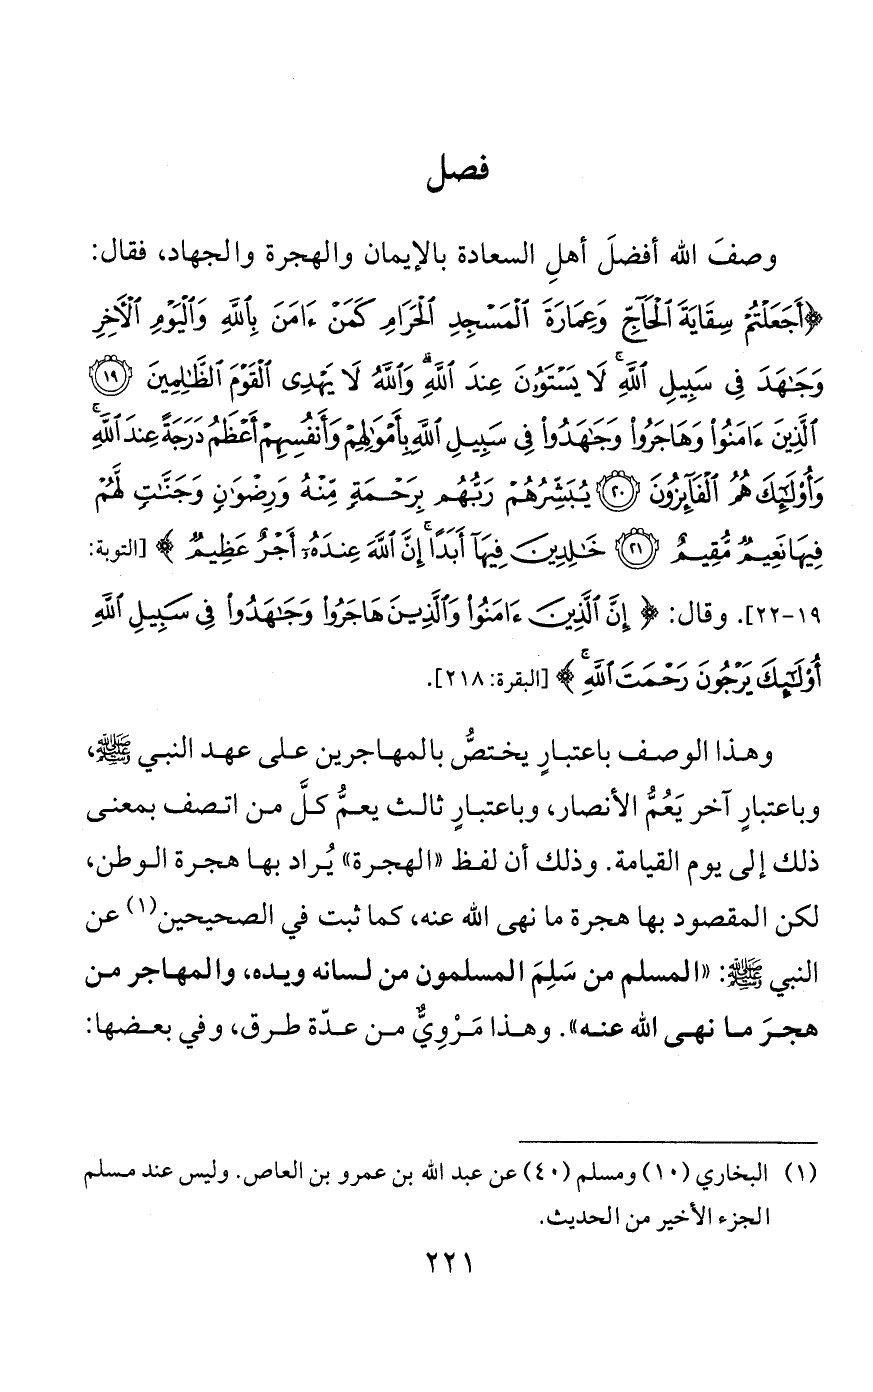 فصل
وصفَ الله أفضلَ أهلِ السعادة بالإيمان والهجرة والجهاد، فقال:
﴿أَجَعَلْتُمْ سِقَايَةَ ٱلْحَآجِّ وَعِمَارَةَ ٱلْمَسْجِدِ ٱلْحَرَامِ كَمَنْ ءَامَنَ بِٱللَّهِ وَٱلْيَوْمِ ٱلْآخِرِ
وَجَٰهَدَ فِى سَبِيلِ ٱللَّهِۚ لَا يَسْتَوُۥنَ عِندَ ٱللَّهِۗ وَٱللَّهُ لَا يَهْدِى ٱلْقَوْمَ ٱلظَّٰلِمِينَ ١٩
ٱلَّذِينَ ءَامَنُوا۟ وَهَاجَرُوا۟ وَجَٰهَدُوا۟ فِى سَبِيلِ ٱللَّهِ بِأَمْوَٰلِهِمْ وَأَنفُسِهِمْ أَعْظَمُ دَرَجَةً عِندَ ٱللَّهِۚ
وَأُو۟لَٰٓئِكَ هُمُ ٱلْفَآئِزُونَ ٢٠ يُبَشِّرُهُمْ رَبُّهُم بِرَحْمَةٍ مِّنْهُ وَرِضْوَٰنٍ وَجَنَّٰتٍ لَّهُمْ
فِيهَا نَعِيمٌ مُّقِيمٌ ٢١ خَٰلِدِينَ فِيهَآ أَبَدًاۚ إِنَّ ٱللَّهَ عِندَهُۥٓ أَجْرٌ عَظِيمٌ﴾ [التوبة:
١٩-٢٢]. وقال: ﴿إِنَّ ٱلَّذِينَ ءَامَنُوا۟ وَٱلَّذِينَ هَاجَرُوا۟ وَجَٰهَدُوا۟ فِى سَبِيلِ ٱللَّهِ
أُو۟لَٰٓئِكَ يَرْجُونَ رَحْمَتَ ٱللَّهِۚ﴾ [البقرة: ٢١٨].
وهذا الوصف باعتبارٍ يختصُّ بالمهاجرين على عهد النبي ﷺ،
وباعتبارٍ آخر يَعُمُّ الأنصار، وباعتبارٍ ثالث يعمُّ كلَّ من اتصف بمعنى
ذلك إلى يوم القيامة. وذلك أن لفظ «الهجرة» يُراد بها هجرة الوطن،
لكن المقصود بها هجرة ما نهى الله عنه، كما ثبت في الصحيحين(١) عن
النبي ﷺ: «المسلم من سَلِمَ المسلمون من لسانه ويده، والمهاجر من
هجرَ ما نهى الله عنه». وهذا مَرْوِيٌّ من عدّة طرق، وفي بعضها:
(١) البخاري (١٠) ومسلم (٤٠) عن عبد الله بن عمرو بن العاص. وليس عند مسلم
الجزء الأخير من الحديث.
٢٢١